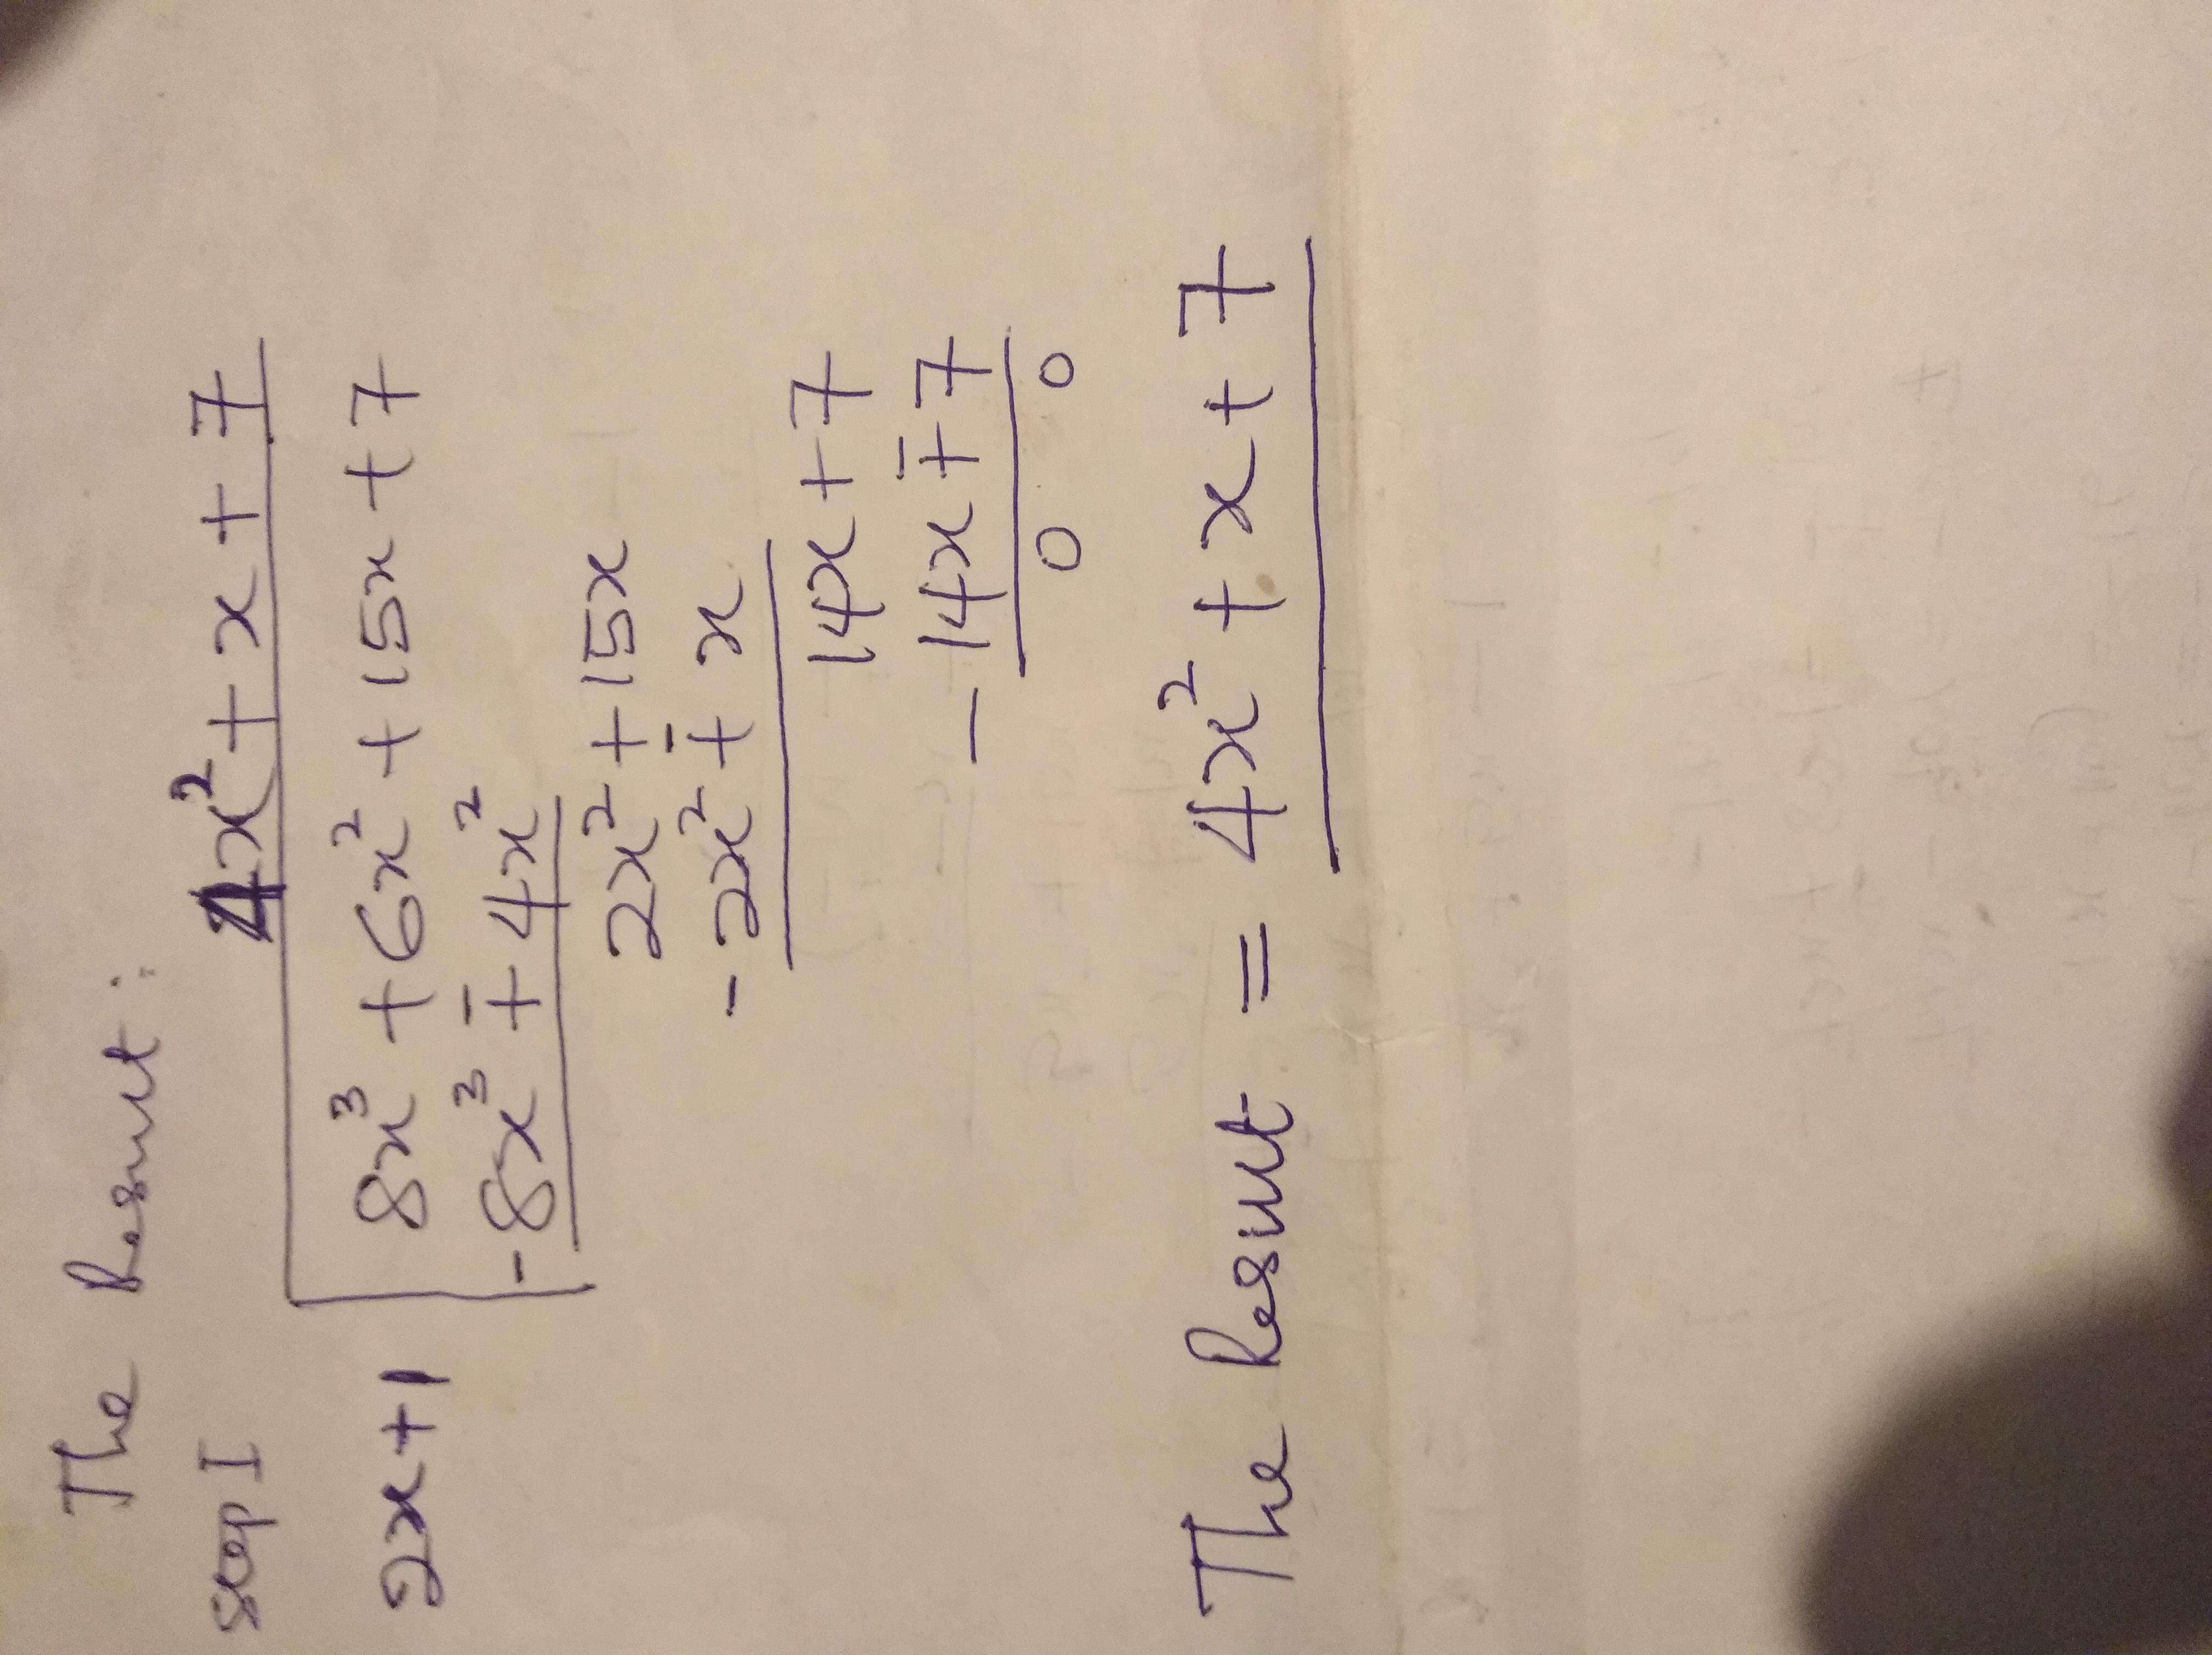 The Result:
step I
4x² + x + 7
2x+1 8x³ + 6x² + 15x + 7
-8x³ ∓ 4x²
2x² + 15x
-2x² ∓ x
14x + 7
-14x ∓ 7
0 0
The Result = 4x² + x + 7